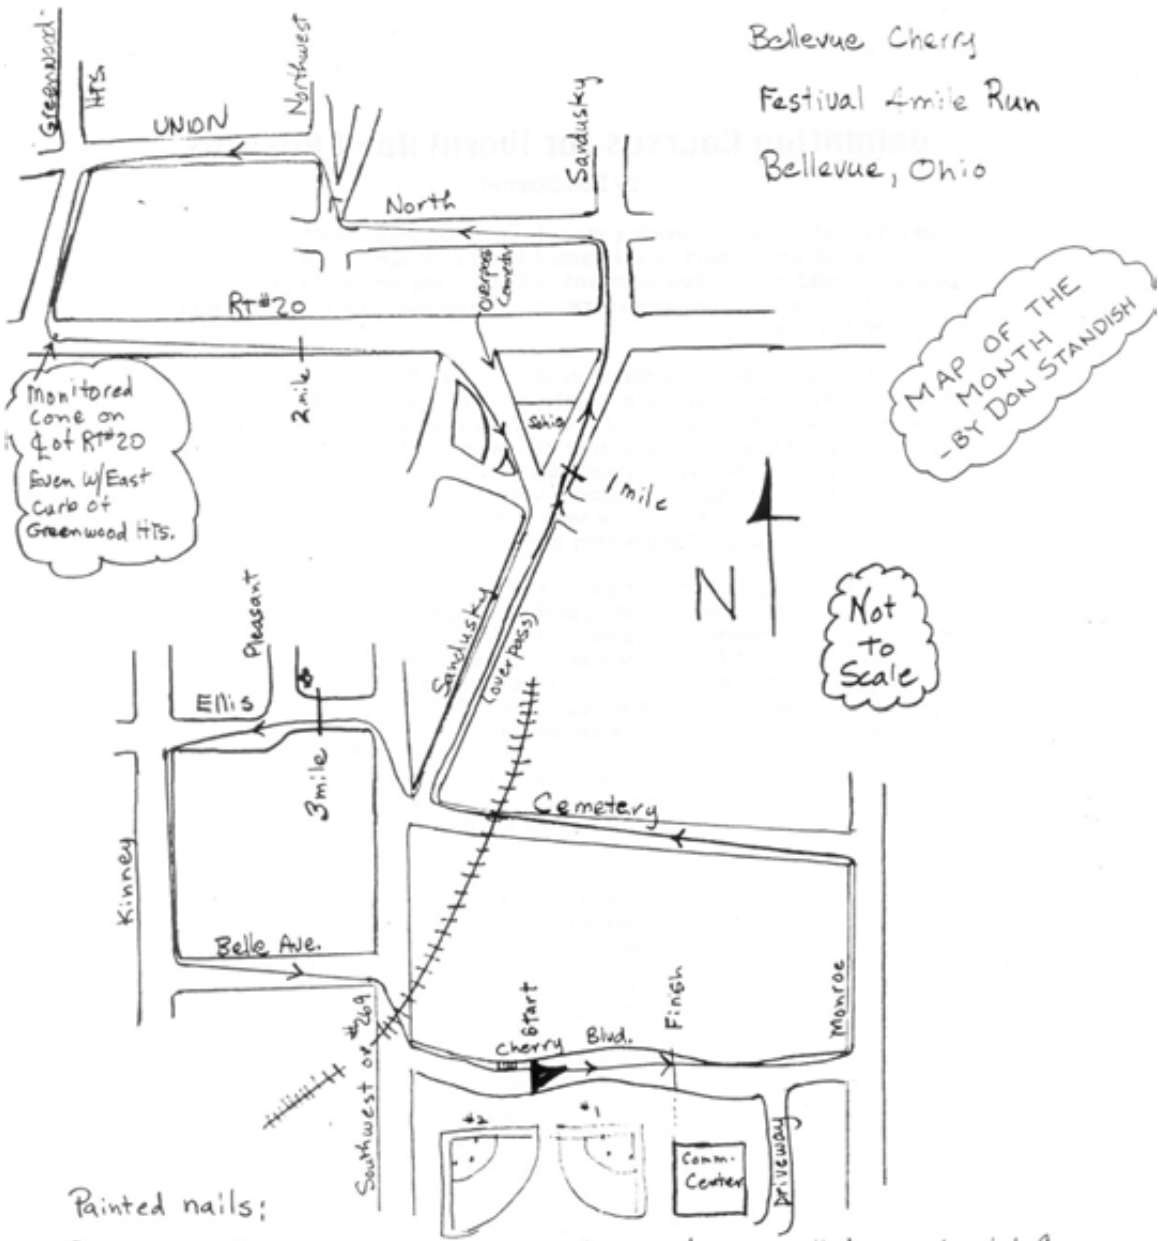 Bellevue Cherry
Festival 4mile Run
Bellevue, Ohio
MAP OF THE
MONTH
-BY DON STANDISH
Greenwood
HTS.
UNION
Northwest
Sandusky
North
overpass
RT#20
2 mile
Monitored
Cone on
℄ of RT#20
Even W/East
Curb of
Greenwood HTS.
Sohio
1 mile
N
Not
to
Scale
Pleasant
Ellis
Sandusky
(overpass)
3 mile
Cemetery
Kinney
Belle Ave.
Southwest or #269
Start
Finish
Cherry Blvd.
Monroe
#2
#1
Comm.
Center
Driveway
Painted nails: